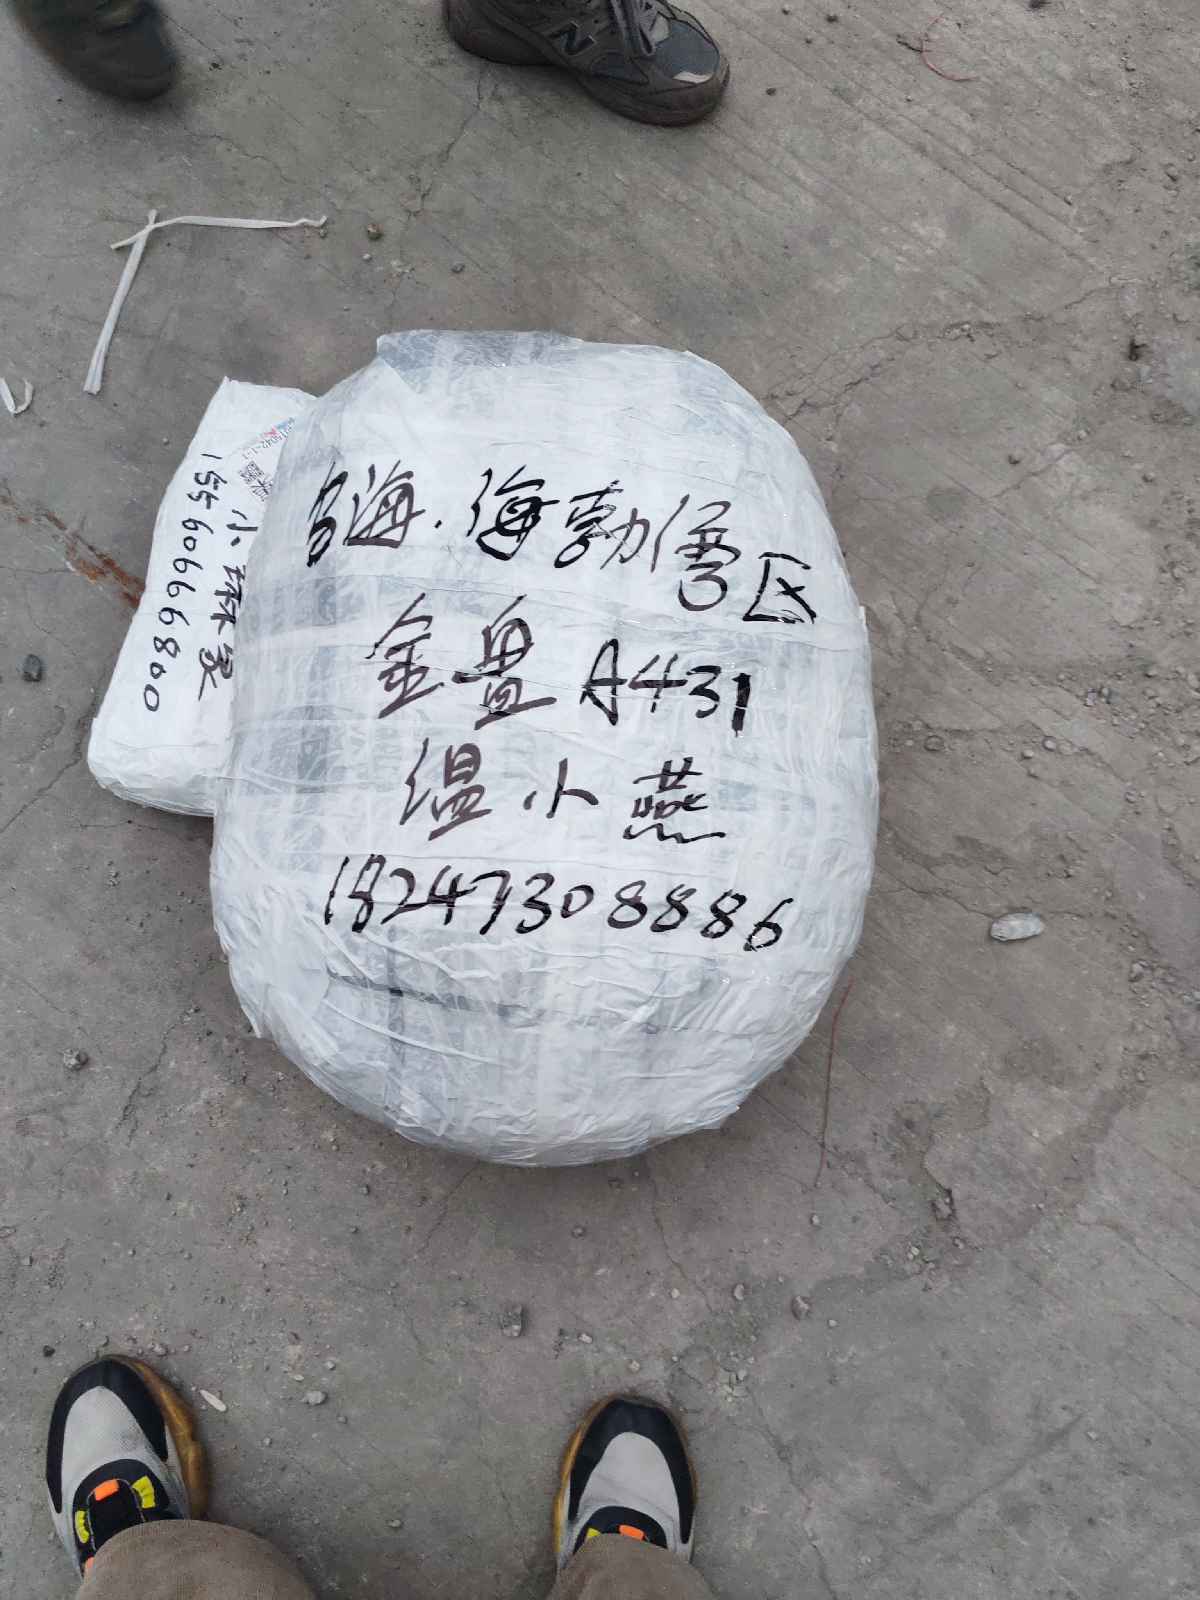 乌海.海勃湾区
金盘A431
温小燕
18247308886
小琳家
15560666800
N